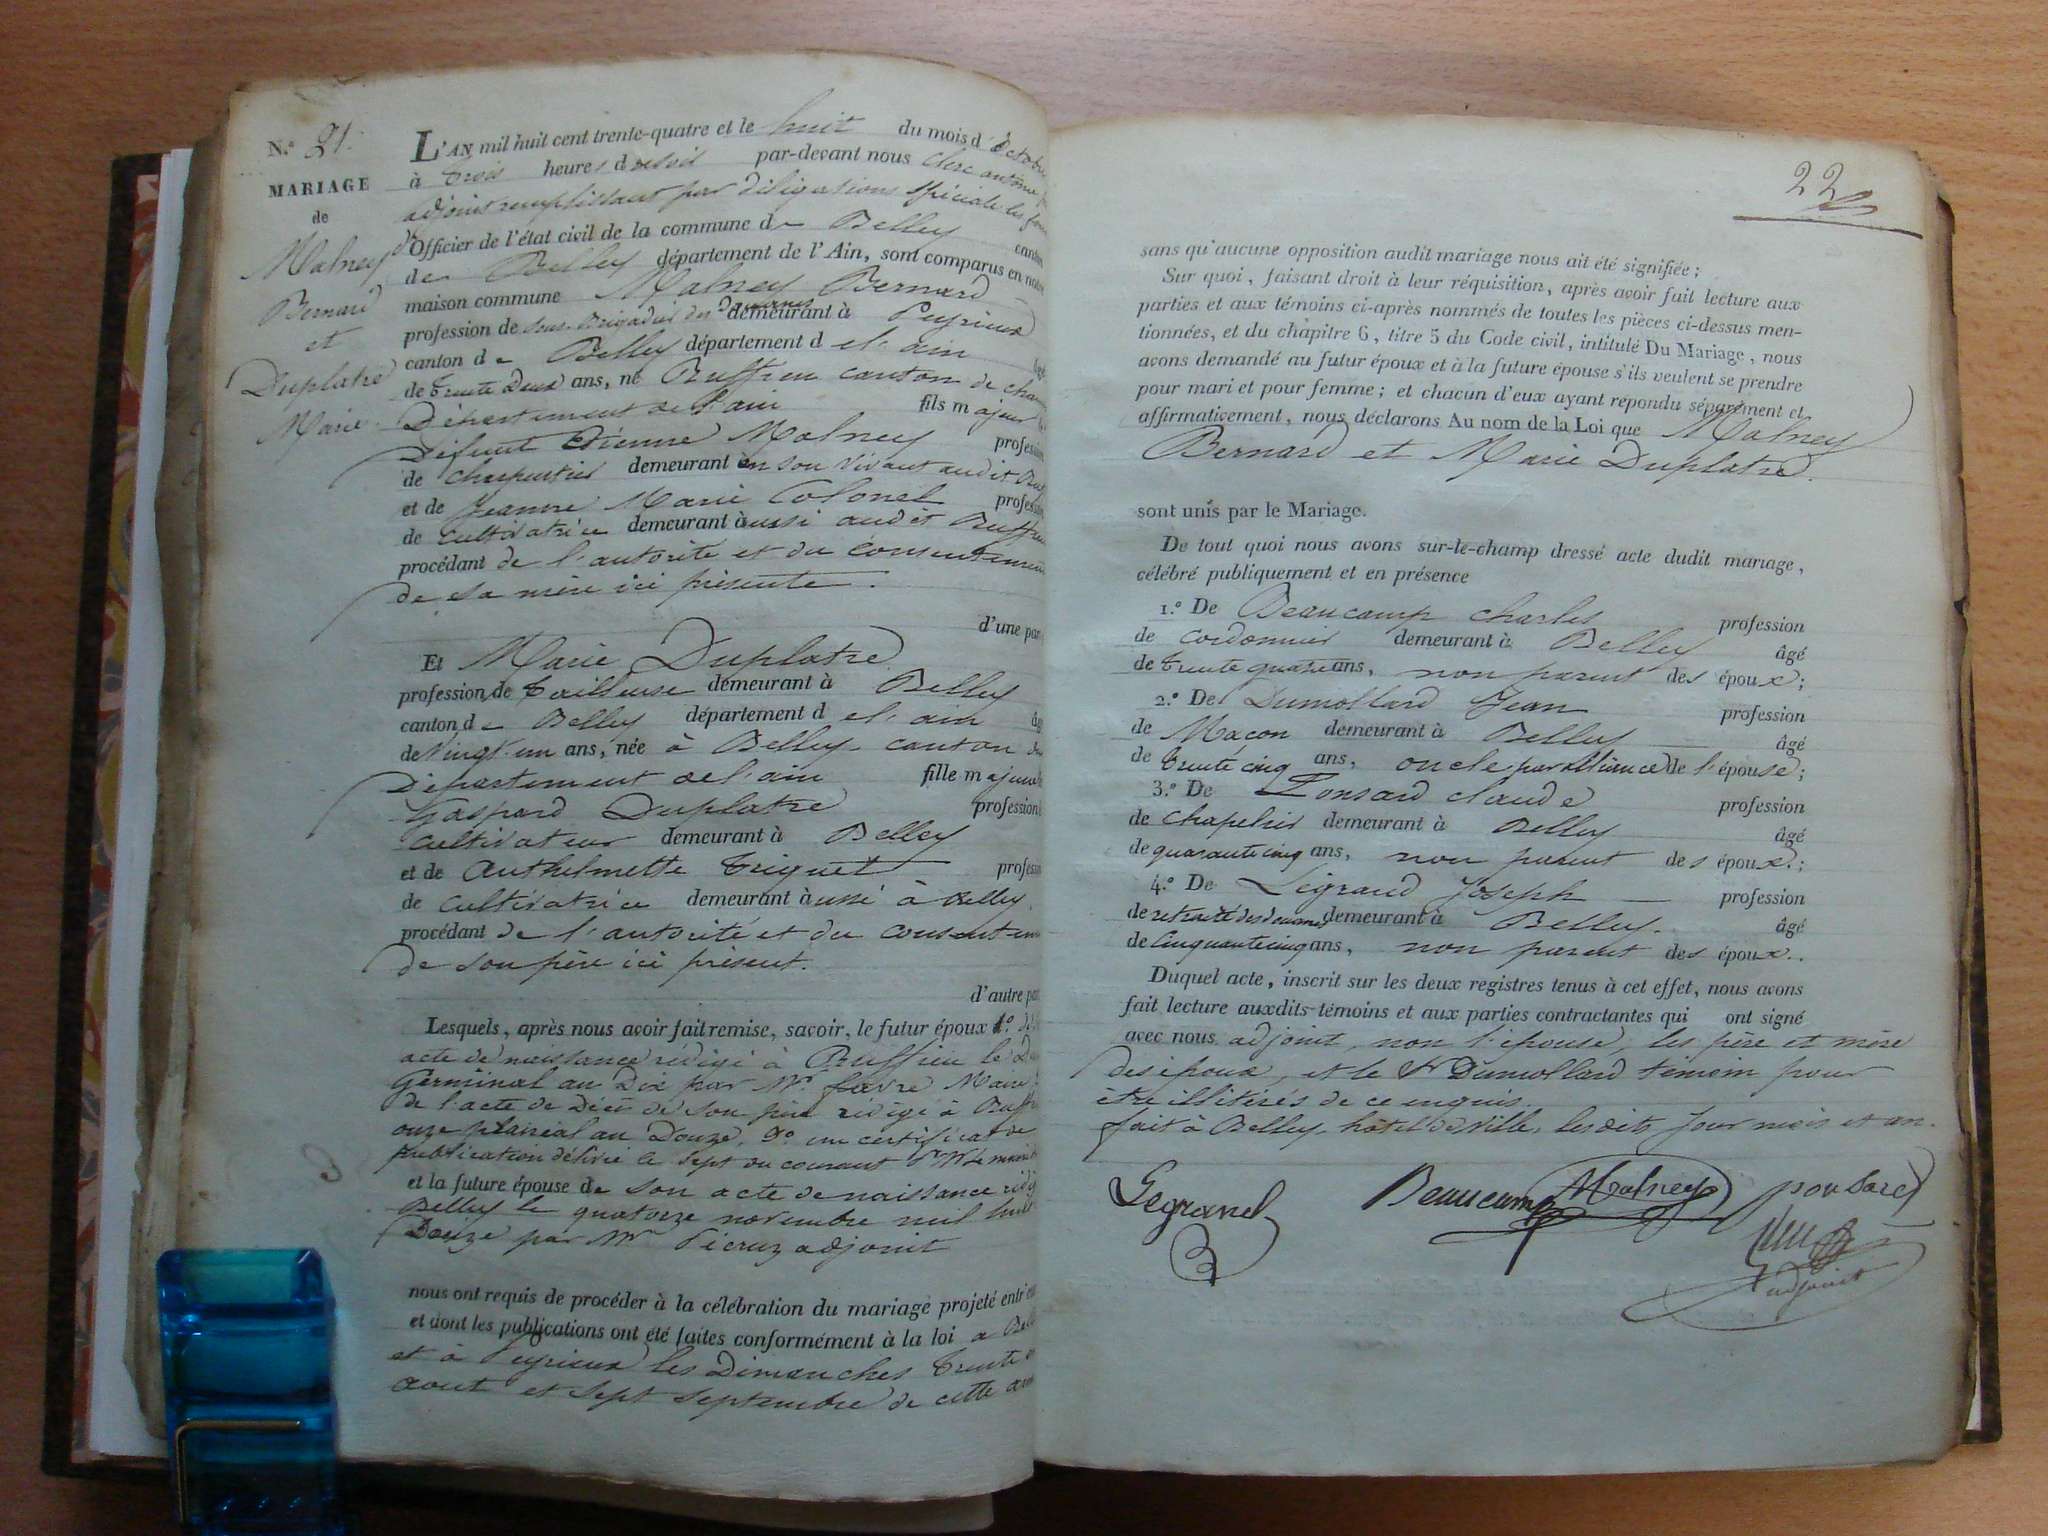 N.º 21.
MARIAGE
de
Malney
Bernard
et
Duplatre
Marie.
L'AN mil huit cent trente-quatre et le huit du mois d'octobre
à trois heures du soir par-devant nous Clerc antoine
adjoint remplissant par déligations spéciale les
Officier de l'état civil de la commune de Belley canton
de Belley département de l'Ain, sont comparus en notre
maison commune Malney Bernard
profession de sous-Brigadier des Douanes demeurant à Peyrieux
canton de Belley département de l'ain âgé
de trente Deux ans, né Ruffieu canton de
Département de l'ain fils majeur
Défunt Etienne Malney profession
de charpentier demeurant en son vivant audit
et de Jeanne Marie Colonel profession
de cultivatrice demeurant aussi audit Ruffieu
procédant de l'autorité et du consentement
de sa mère ici présente.
d'une part
Et Marie Duplatre
profession de tailleuse demeurant à Belley
canton de Belley département de l'ain
de vingt-un ans, née à Belley canton
Département de l'ain fille majeure
Gaspard Duplatre profession
cultivateur demeurant à Belley
et de Anthelmette Triquet profession
de cultivatrice demeurant aussi à Belley.
procédant de l'autorité et du consentement
de son père ici présent.
d'autre part
Lesquels, après nous avoir fait remise, savoir, le futur époux 1.º
acte de naissance rédigé à Ruffieu le
Germinal an Dix par Mr. favre Maire
de l'acte de Décè de son père rédigé à
onze plairéal an Douze, un certificat de
publication délivré le sept du courant
et la future épouse de son acte de naissance
Belley le quatorze novembre mil huit
Douze par Mr adjoint
nous ont requis de procéder à la célébration du mariage projeté entr'eux
et dont les publications ont été faites conformément à la loi a
et à Peyrieux les Dimanches trente
aout et sept septembre de cette
22
sans qu'aucune opposition audit mariage nous ait été signifiée ;
Sur quoi, faisant droit à leur réquisition, après avoir fait lecture aux
parties et aux témoins ci-après nommés de toutes les pièces ci-dessus men-
tionnées, et du chapitre 6, titre 5 du Code civil, intitulé Du Mariage, nous
avons demandé au futur époux et à la future épouse s'ils veulent se prendre
pour mari et pour femme ; et chacun d'eux ayant répondu séparément et
affirmativement, nous déclarons Au nom de la Loi que Malney
Bernard et Marie Duplatre.
sont unis par le Mariage.
De tout quoi nous avons sur-le-champ dressé acte dudit mariage,
célébré publiquement et en présence
1.º De Beaucamp charles profession
de cordonnier demeurant à Belley âgé
de trente quatre ans, non parent des époux ;
2.º De Dumollard Jean profession
de Maçon demeurant à Belley âgé
de trente cinq ans, oncle par alliance de l'épouse ;
3.º De Ponsard claude profession
de chapelier demeurant à Belley âgé
de quarante cinq ans, non parent des époux ;
4.º De Legrand Joseph profession
de retraité des douanes demeurant à Belley. âgé
de cinquante cinq ans, non parent des époux.
Duquel acte, inscrit sur les deux registres tenus à cet effet, nous avons
fait lecture auxdits témoins et aux parties contractantes qui ont signé
avec nous adjoint, non l'épouse, les père et mère
des époux, et le Sr Dumollard témoin pour
être illitérés de ce enquis.
fait à Belley hôtel de ville, lesdits jour mois et an.
Legrand Beaucamp Malney ponsard
adjoint